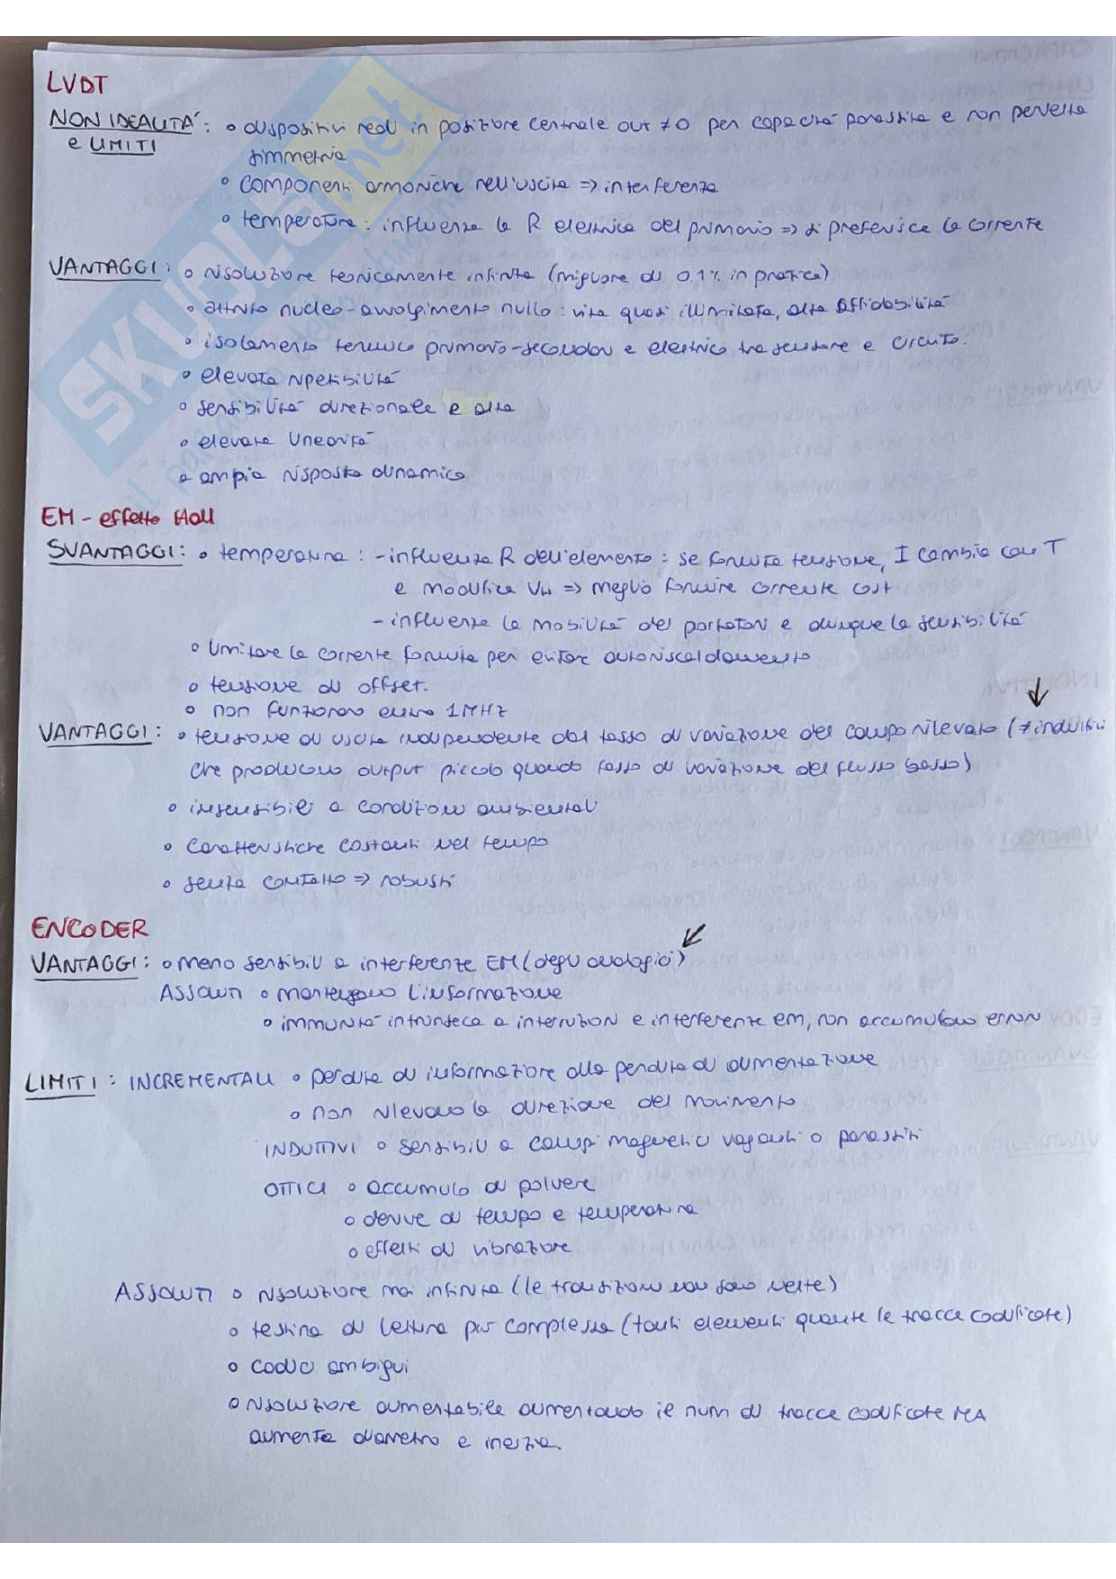 LVDT
NON IDEALITÀ : o dispositivi reali in posizione centrale out ≠ 0 per capacità parassite e non perfetta
e LIMITI
simmetria
o componenti armoniche nell'uscita => interferenza
o temperatura : influenza la R elettrica del primario => si preferisce la corrente
VANTAGGI : o risoluzione teoricamente infinita (migliore di 0.1% in pratica)
o attrito nucleo-avvolgimento nullo : vita quasi illimitata, alta affidabilità
o isolamento termico primario-secondari e elettrico tra sensore e circuito.
o elevata ripetibilità
o sensibilità direzionale e alta
o elevata linearità
o ampia risposta dinamica
EM - effetto Hall
SVANTAGGI : o temperatura : - influenza R dell'elemento : se fornita tensione, I cambia con T
e modifica VH => meglio fornire corrente cost
- influenza la mobilità dei portatori e dunque la sensibilità
o limitare la corrente fornita per evitare autoriscaldamento
o tensione di offset.
o non funzionano entro 1MHz
VANTAGGI : o tensione di uscita indipendente dal tasso di variazione del campo rilevato (≠ induttivi
che producono output piccolo quando tasso di variazione del flusso basso)
o insensibili a condizioni ambientali
o caratteristiche costanti nel tempo
o senza contatto => robusti
ENCODER
VANTAGGI : o meno sensibili a interferenze EM (degli analogici)
ASSOLUTI o mantengono l'informazione
o immunità intrinseca a interruzioni e interferenze em, non accumulano errori
LIMITI : INCREMENTALI o perdita di informazione alla perdita di alimentazione
o non rilevano la direzione del movimento
INDUTTIVI o sensibili a campi magnetici vaganti o parassiti
OTTICI o accumulo di polvere
o derive di tempo e temperatura
o effetti di vibrazione
ASSOLUTI o risoluzione mai infinita (le transizioni non sono nette)
o testina di lettura più complessa (tanti elementi quante le tracce codificate)
o codici ambigui
o risoluzione aumentabile aumentando il num di tracce codificate MA
aumenta diametro e inerzia.
SKUOLA.net